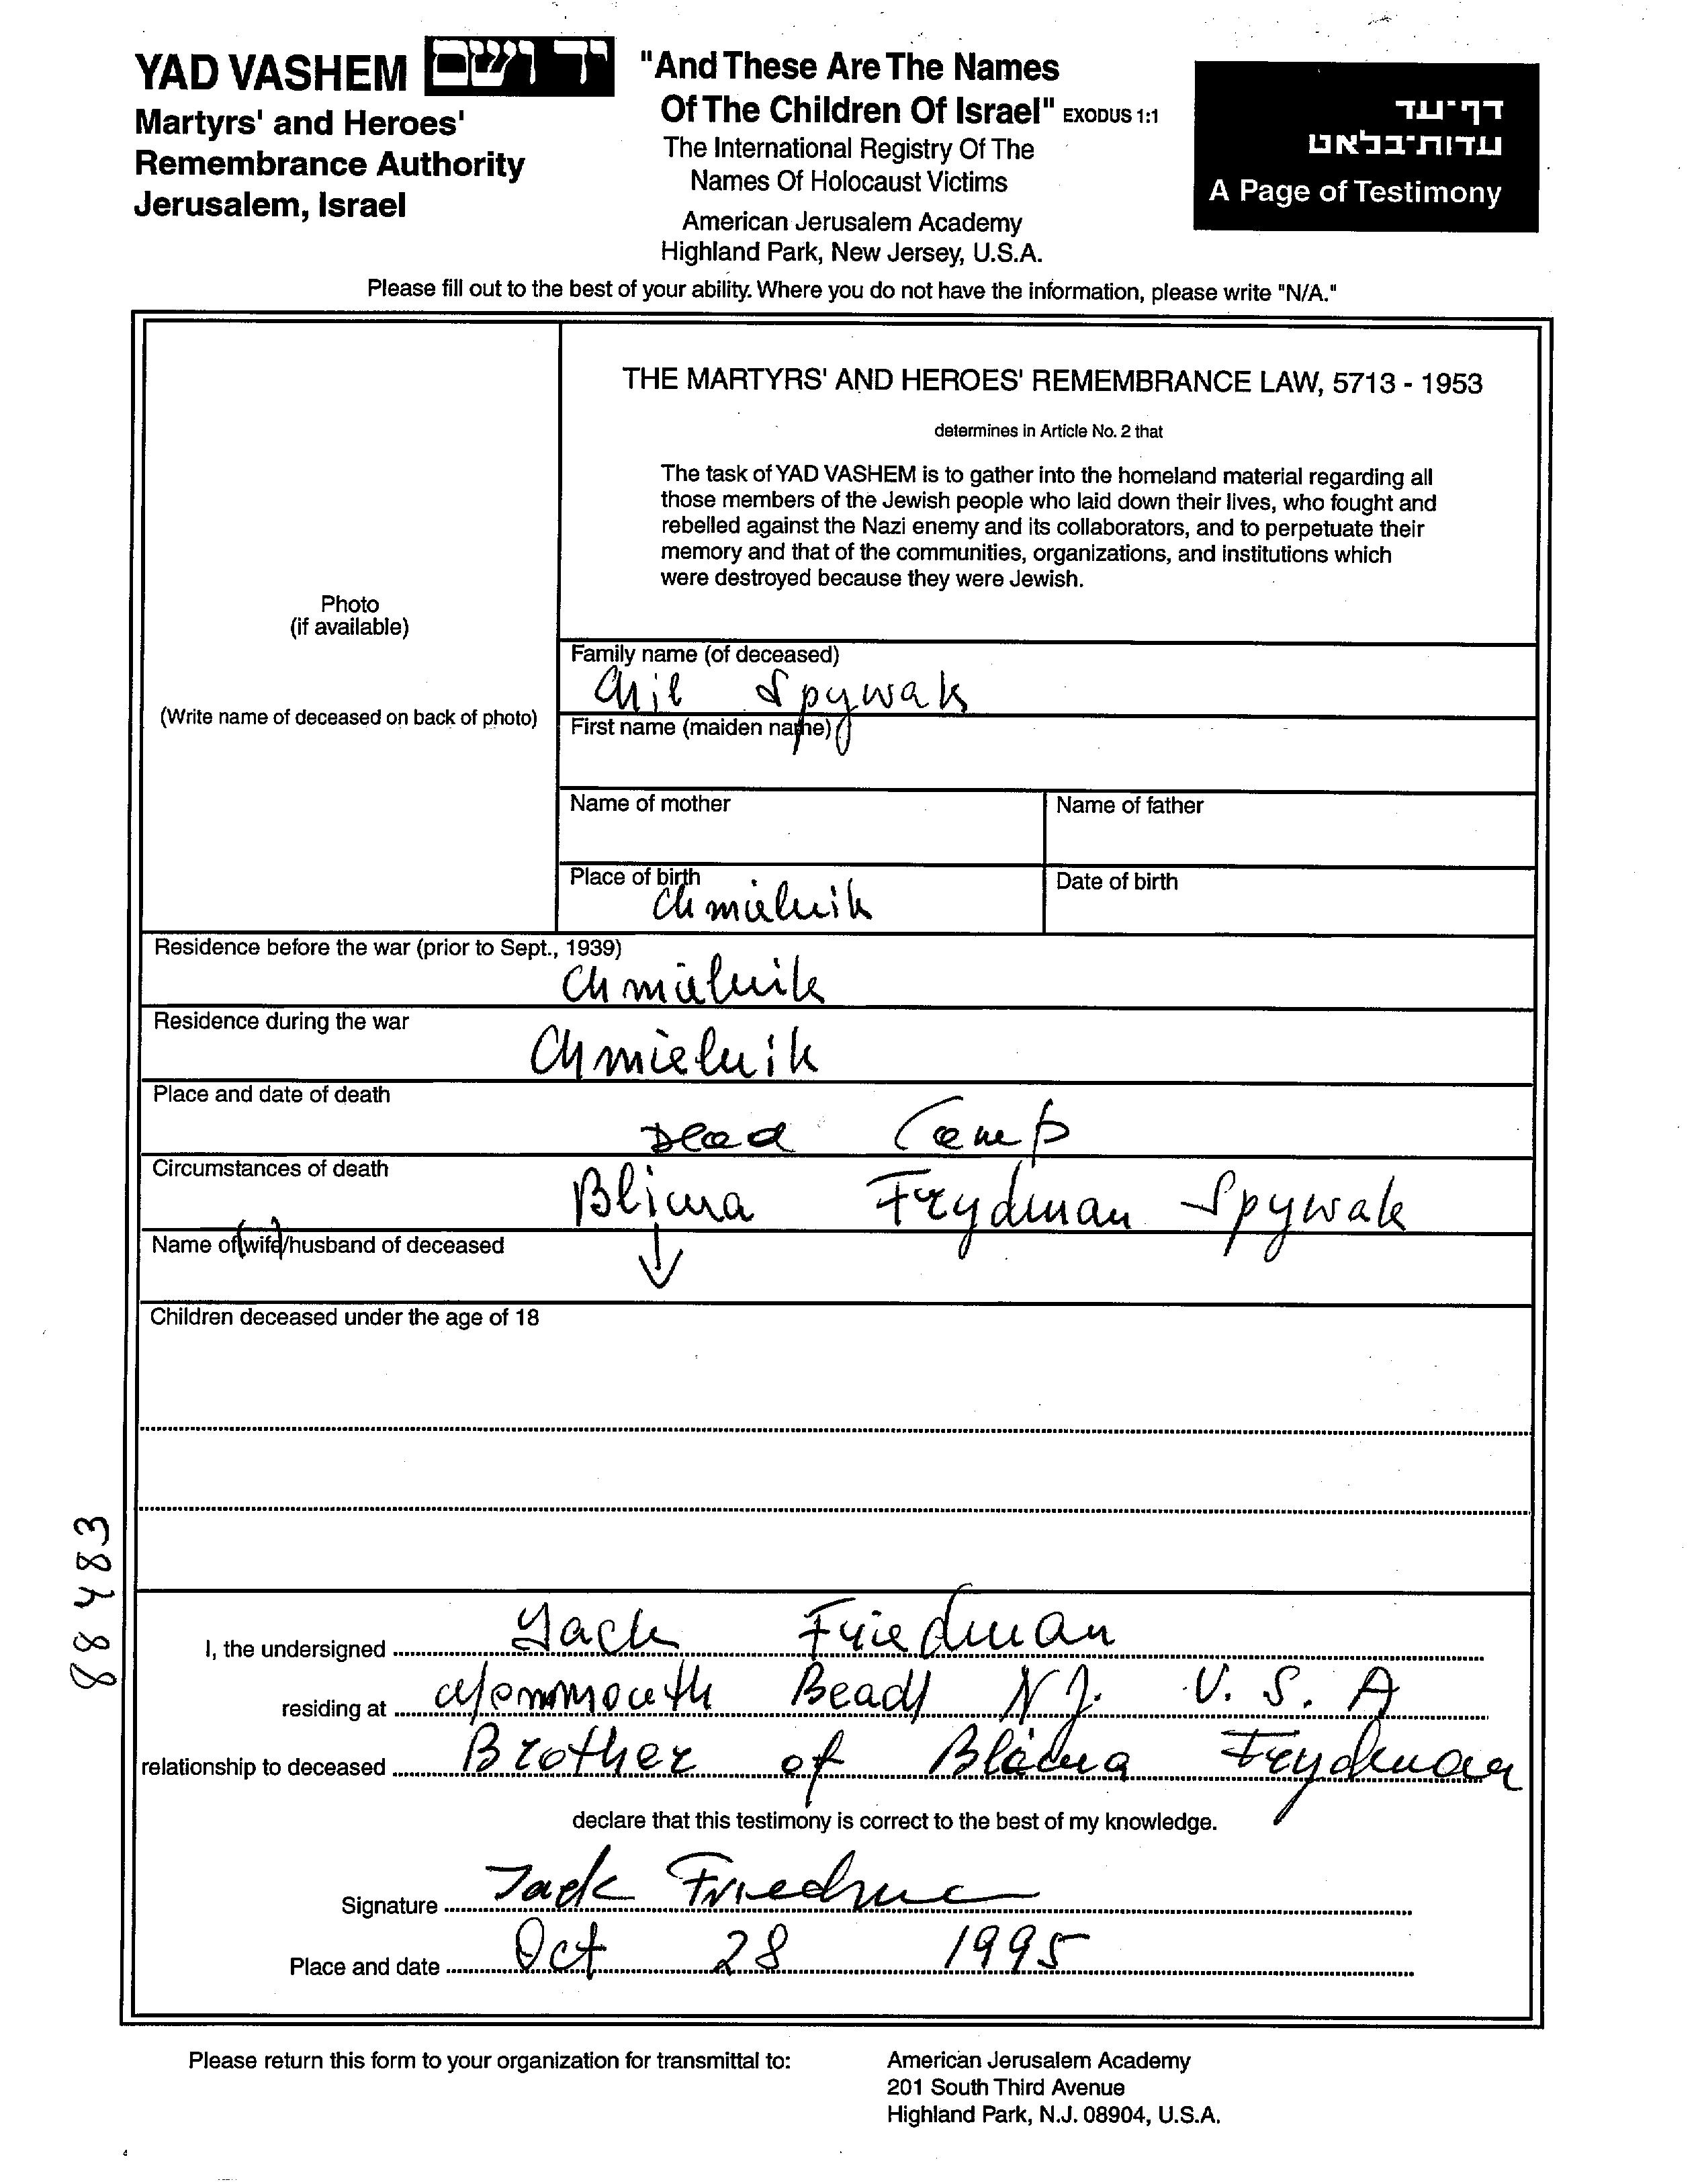 YAD VASHEM יד ושם
Martyrs' and Heroes'
Remembrance Authority
Jerusalem, Israel
"And These Are The Names
Of The Children Of Israel" EXODUS 1:1
The International Registry Of The
Names Of Holocaust Victims
American Jerusalem Academy
Highland Park, New Jersey, U.S.A.
דף־עד
עדות־בלאט
A Page of Testimony
Please fill out to the best of your ability. Where you do not have the information, please write "N/A."
Photo
(if available)
(Write name of deceased on back of photo)
THE MARTYRS' AND HEROES' REMEMBRANCE LAW, 5713 - 1953
determines in Article No. 2 that
The task of YAD VASHEM is to gather into the homeland material regarding all
those members of the Jewish people who laid down their lives, who fought and
rebelled against the Nazi enemy and its collaborators, and to perpetuate their
memory and that of the communities, organizations, and institutions which
were destroyed because they were Jewish.
Family name (of deceased)
Chil Spywak
First name (maiden name)
Name of mother
Name of father
Place of birth
Chmielnik
Date of birth
Residence before the war (prior to Sept., 1939)
Chmielnik
Residence during the war
Chmielnik
Place and date of death
Dead Camp
Circumstances of death
Blima Frydman Spywak
Name of (wife)/husband of deceased
Children deceased under the age of 18
88483
I, the undersigned Jack Friedman
residing at Monmouth Beach N.J. U.S.A
relationship to deceased Brother of Blima Frydman
declare that this testimony is correct to the best of my knowledge.
Signature Jack Friedman
Place and date Oct 28 1995
Please return this form to your organization for transmittal to:
American Jerusalem Academy
201 South Third Avenue
Highland Park, N.J. 08904, U.S.A.